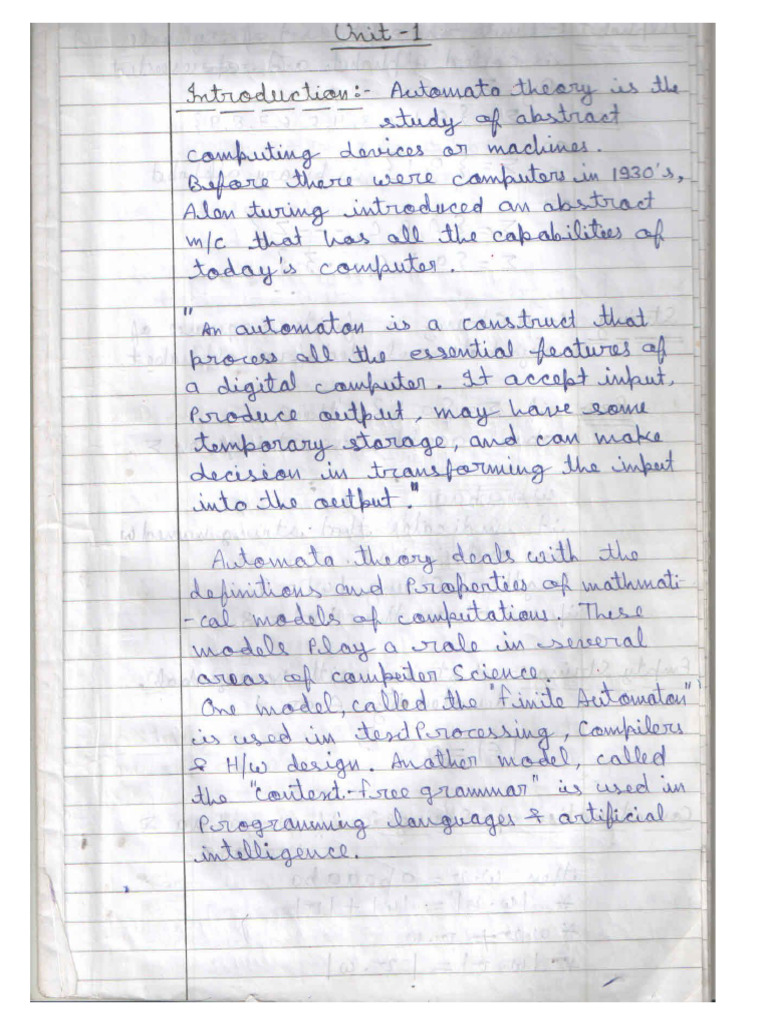 Unit-1
Introduction:- Automata theory is the
study of abstract
computing devices or machines.
Before there were computers in 1930's,
Alan turing introduced an abstract
m/c that has all the capabilities of
today's computer.
"An automaton is a construct that
process all the essential features of
a digital computer. It accept input,
Produce output, may have some
temporary storage, and can make
decision in transforming the input
into the output."
Automata theory deals with the
definitions and Properties of mathmati-
-cal models of computations. These
models Play a role in several
areas of computer Science.
One model, called the "finite Automaton"
is used in textProcessing, Compilers
& H/w design. Another model, called
the "context-free grammar" is used in
Programming languages & artificial
intelligence.